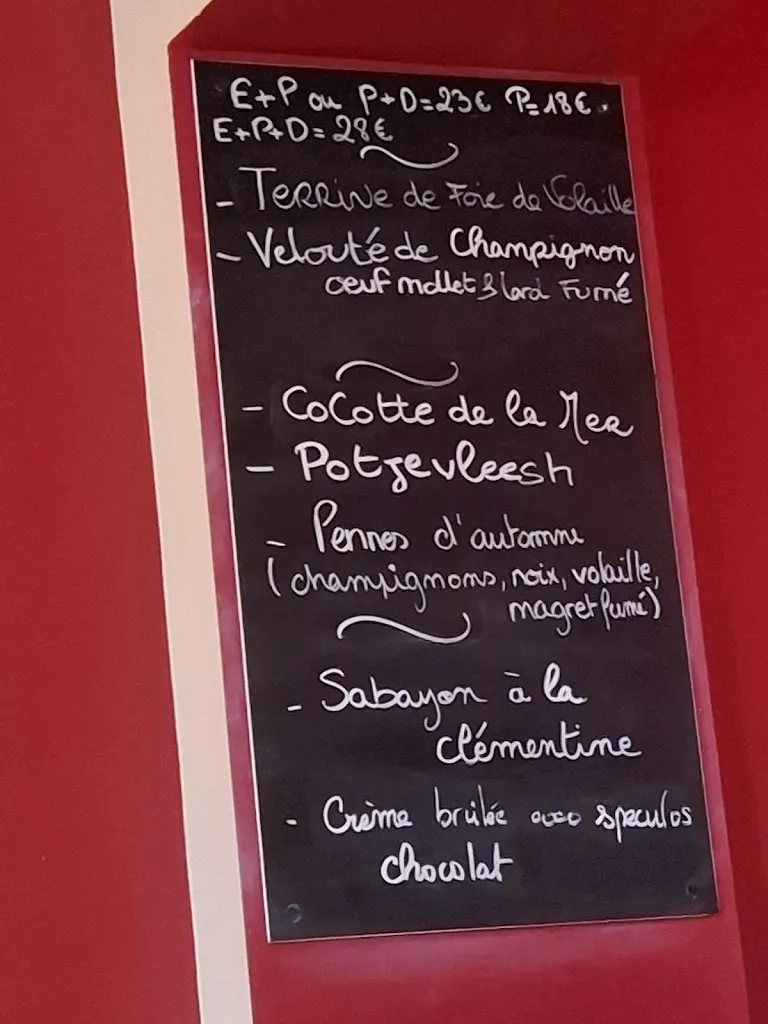 E+P ou P+D=23€ P=18€.
E+P+D=28€
- TERRINe de Foie de Volaille
- Velouté de Champignon
oeuf mollet & lard Fumé
- CoCotte de la Mer
- Potjevleesh
- Pennes d'automne
(champignons, noix, volaille,
magret fumé)
- Sabayon à la
clémentine
- Crème brûlée avec speculos
chocolat